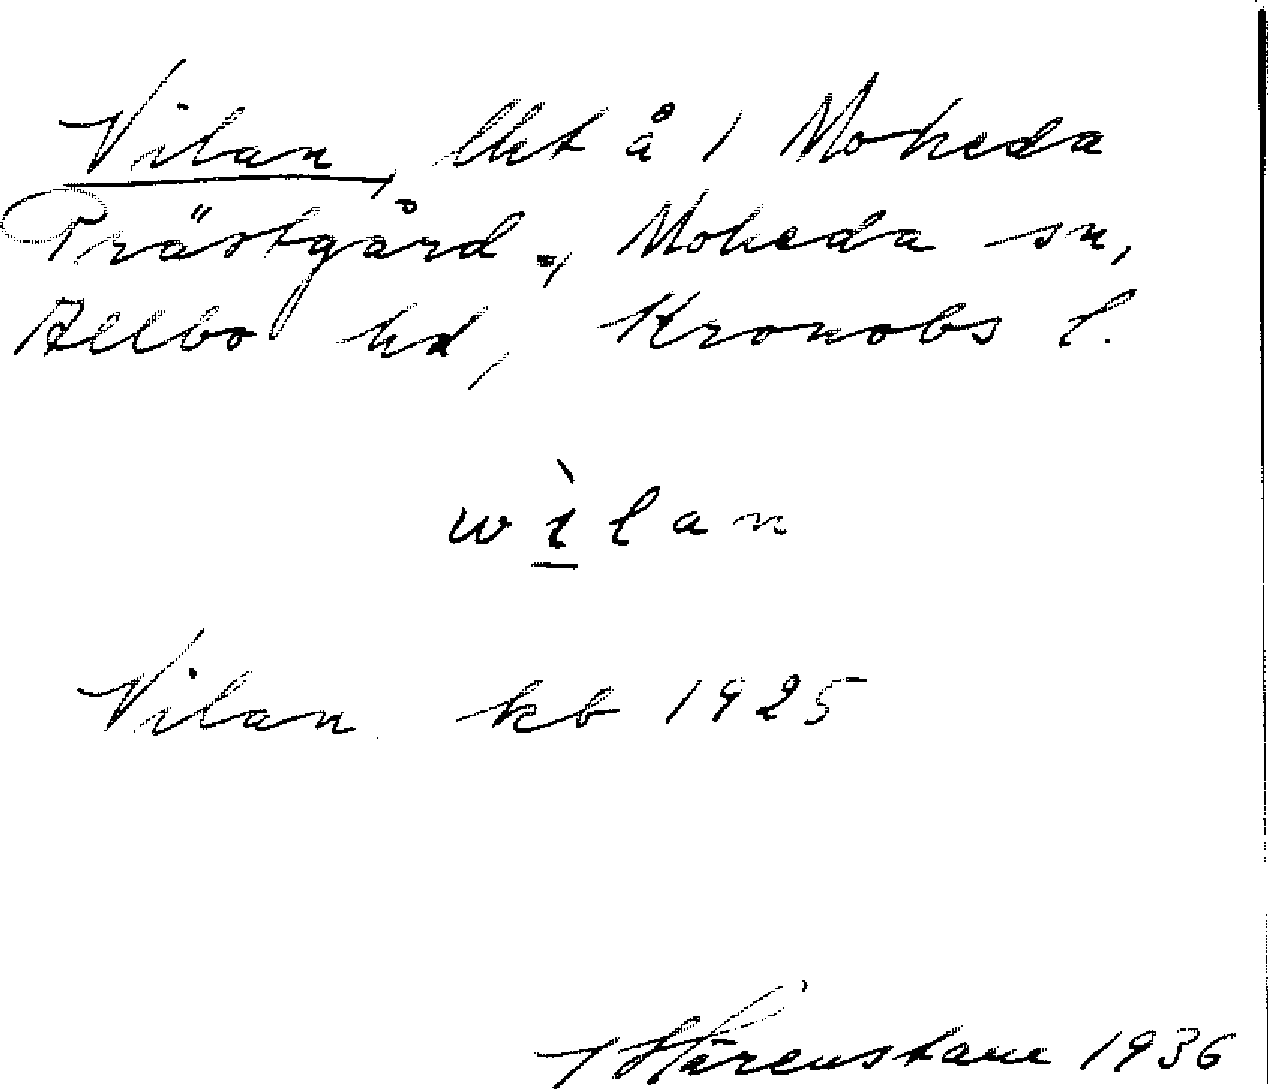 Vilan, lht å 1 Moheda
Prästgård., Moheda sn,
Allbo hd, Kronobs l.
wìlan
Vilan kb 1925
1936